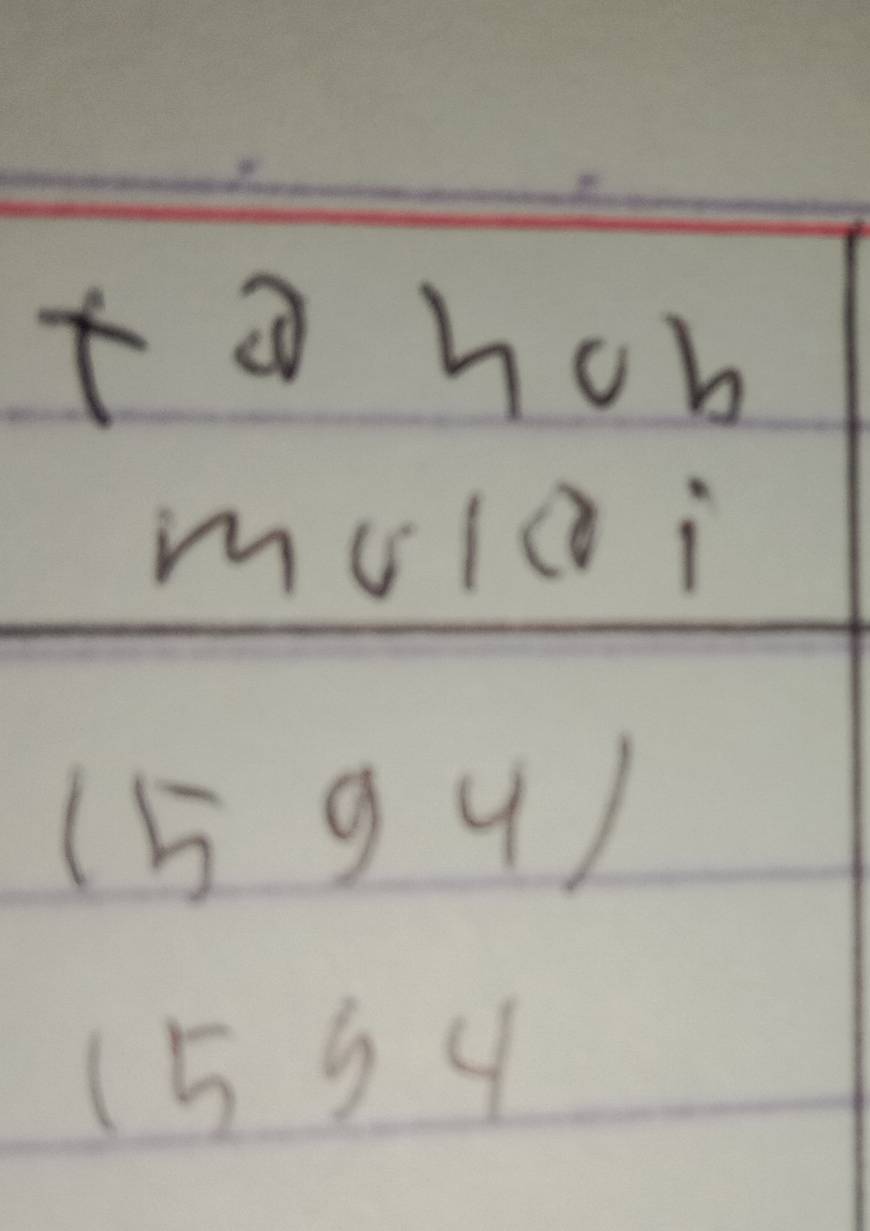 tahun
mulai
(594)
(554